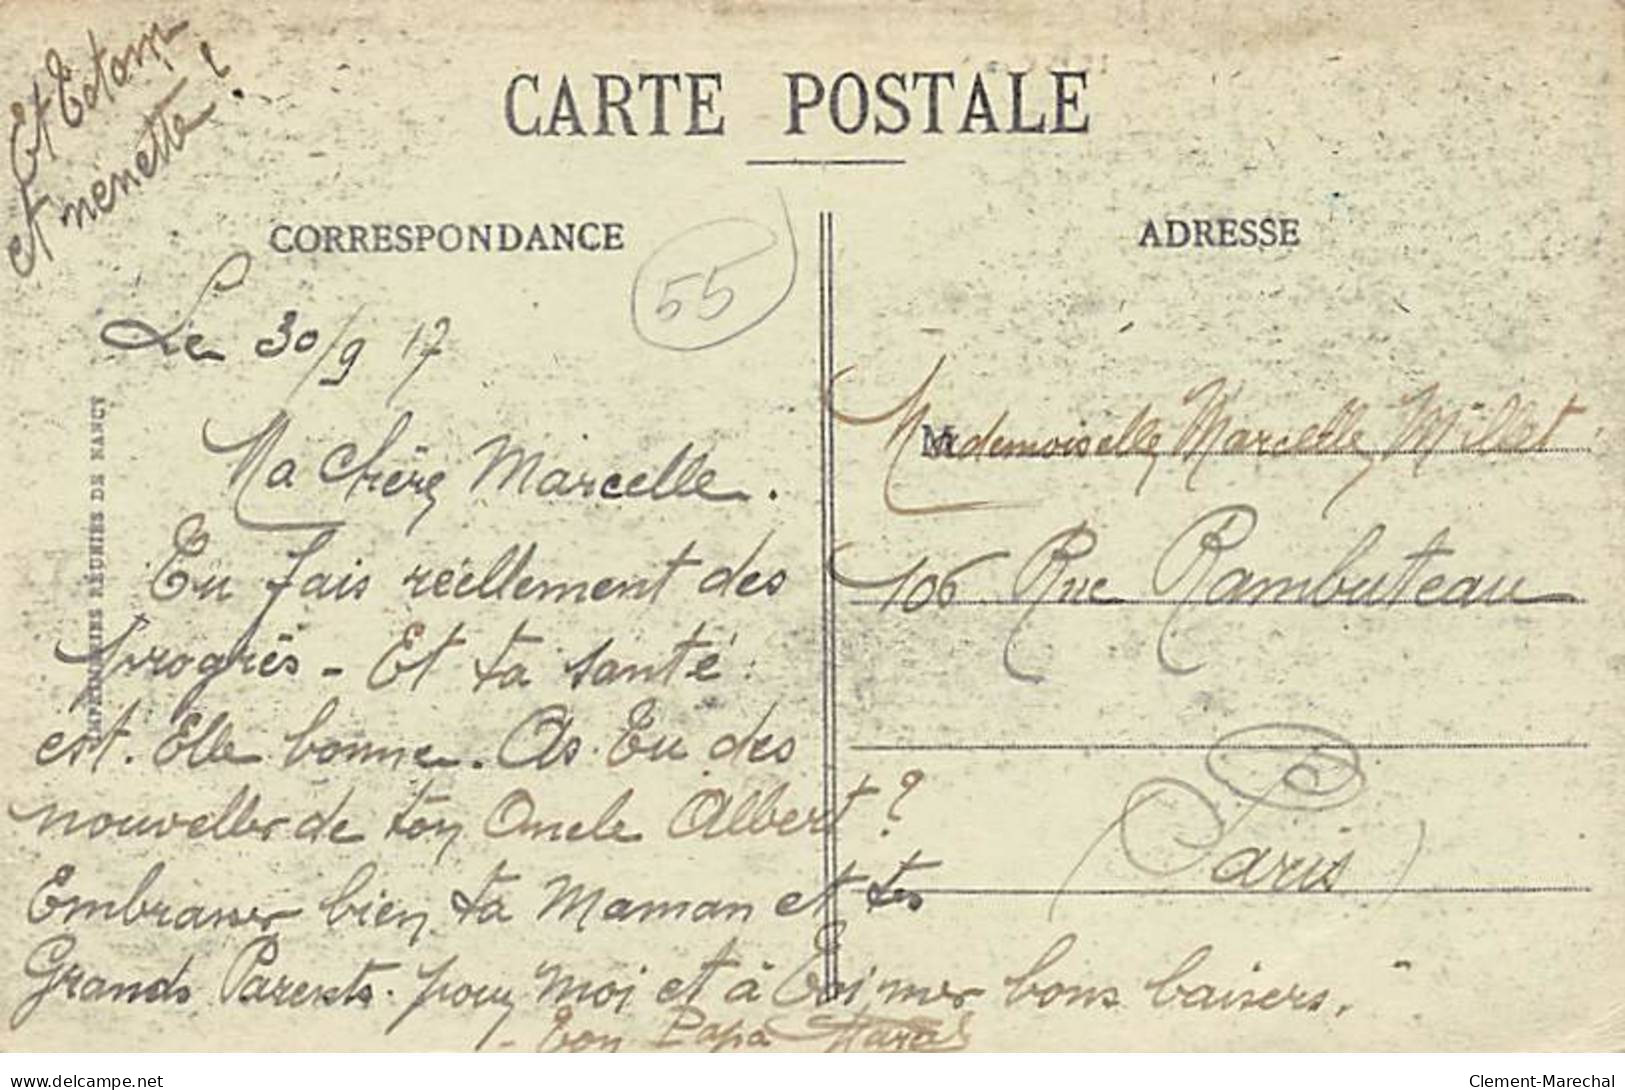 Et
et nenette ?
CARTE POSTALE
CORRESPONDANCE
55
ADRESSE
IMPRIMERIES RÉUNIES DE NANCY
Le 30/9 17
Ma Chère Marcelle.
Tu fais réellement des
progrès - Et ta santé
est. Elle bonne. As. Tu des
nouvelles de ton Oncle Albert ?
Embrasser bien ta Maman et tes
Grands Parents. pour moi et à Toi mes bons baisers.
- Ton Papa
Mademoiselle Marcelle Millet
106 Rue Rambuteau
(Paris)
delcampe.net
Clement-Marechal